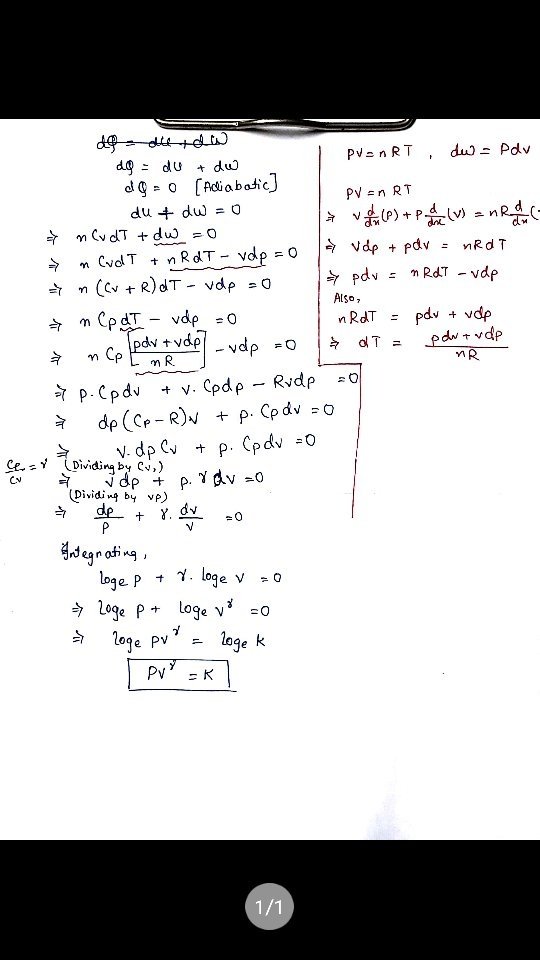 dQ = du + dw
dQ = du + dw
dQ = 0 [Adiabatic]
du + dw = 0
⇒ nCvdT + dw = 0
⇒ n CvdT + nRdT - vdp = 0
⇒ n (Cv + R)dT - vdp = 0
⇒ n CpdT - vdp = 0
⇒ n Cp [pdv + vdp / nR] - vdp = 0
⇒ p. Cpdv + v. Cpdp - Rvdp = 0
⇒ dp (Cp - R)v + p. Cpdv = 0
⇒ v. dp Cv + p. Cpdv = 0
Cp/Cv = γ (Dividing by Cv,)
⇒ vdp + p. γ dv = 0
(Dividing by vp)
⇒ dp/p + γ. dv/v = 0
Integrating,
loge p + γ. loge v = 0
⇒ loge p + loge v^γ = 0
⇒ loge pv^γ = loge k
PV^γ = K
PV = nRT , dw = Pdv
PV = n RT
⇒ v d/dx (P) + P d/dx (v) = nR d/dx (
⇒ vdp + pdv = nRdT
⇒ pdv = nRdT - vdp
Also,
nRdT = pdv + vdp
⇒ dT = pdv + vdp / nR
1/1